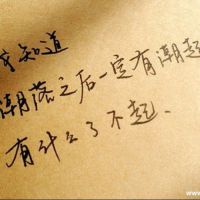 知道
潮落之后一定有潮起
有什么了不起.
www.